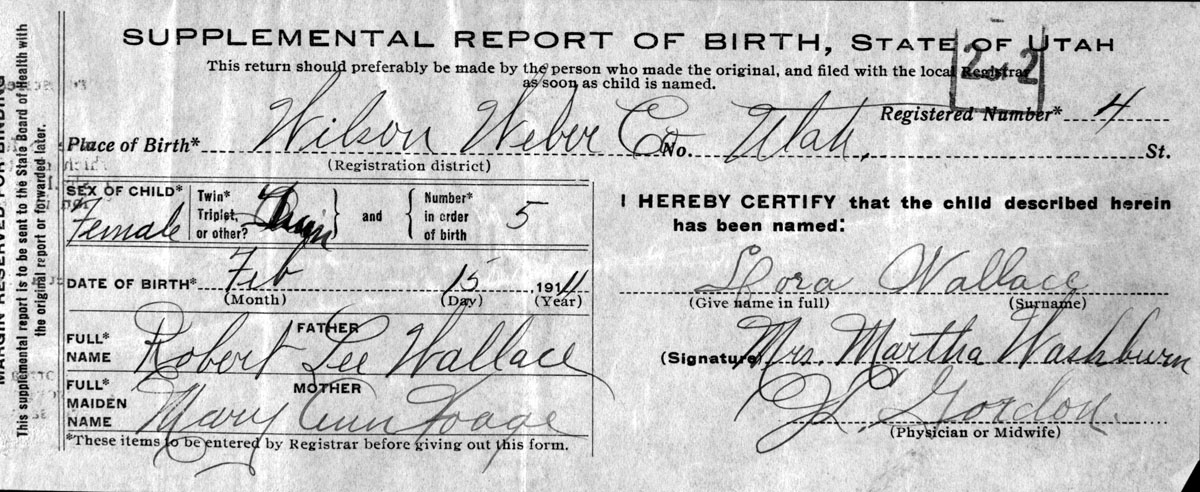 SUPPLEMENTAL REPORT OF BIRTH, STATE OF UTAH
This return should preferably be made by the person who made the original, and filed with the local Registrar
as soon as child is named.
Registered Number* 4
Place of Birth* Wilson Weber Co. No. Utah, St.
(Registration district)
SEX OF CHILD*
Female
Twin*
Triplet,
or other?
and
Number*
in order
of birth
5
DATE OF BIRTH* Feb 15, 1911
(Month) (Day) (Year)
FATHER
FULL*
NAME
Robert Lee Wallace
MOTHER
FULL*
MAIDEN
NAME
Mary Ann
*These items to be entered by Registrar before giving out this form.
I HEREBY CERTIFY that the child described herein
has been named:
Wallace
(Give name in full) (Surname)
(Signature) Mrs. Martha Washburn
Gordon.
(Physician or Midwife)
This supplemental report is to be sent to the State Board of Health with
the original report or forwarded later.